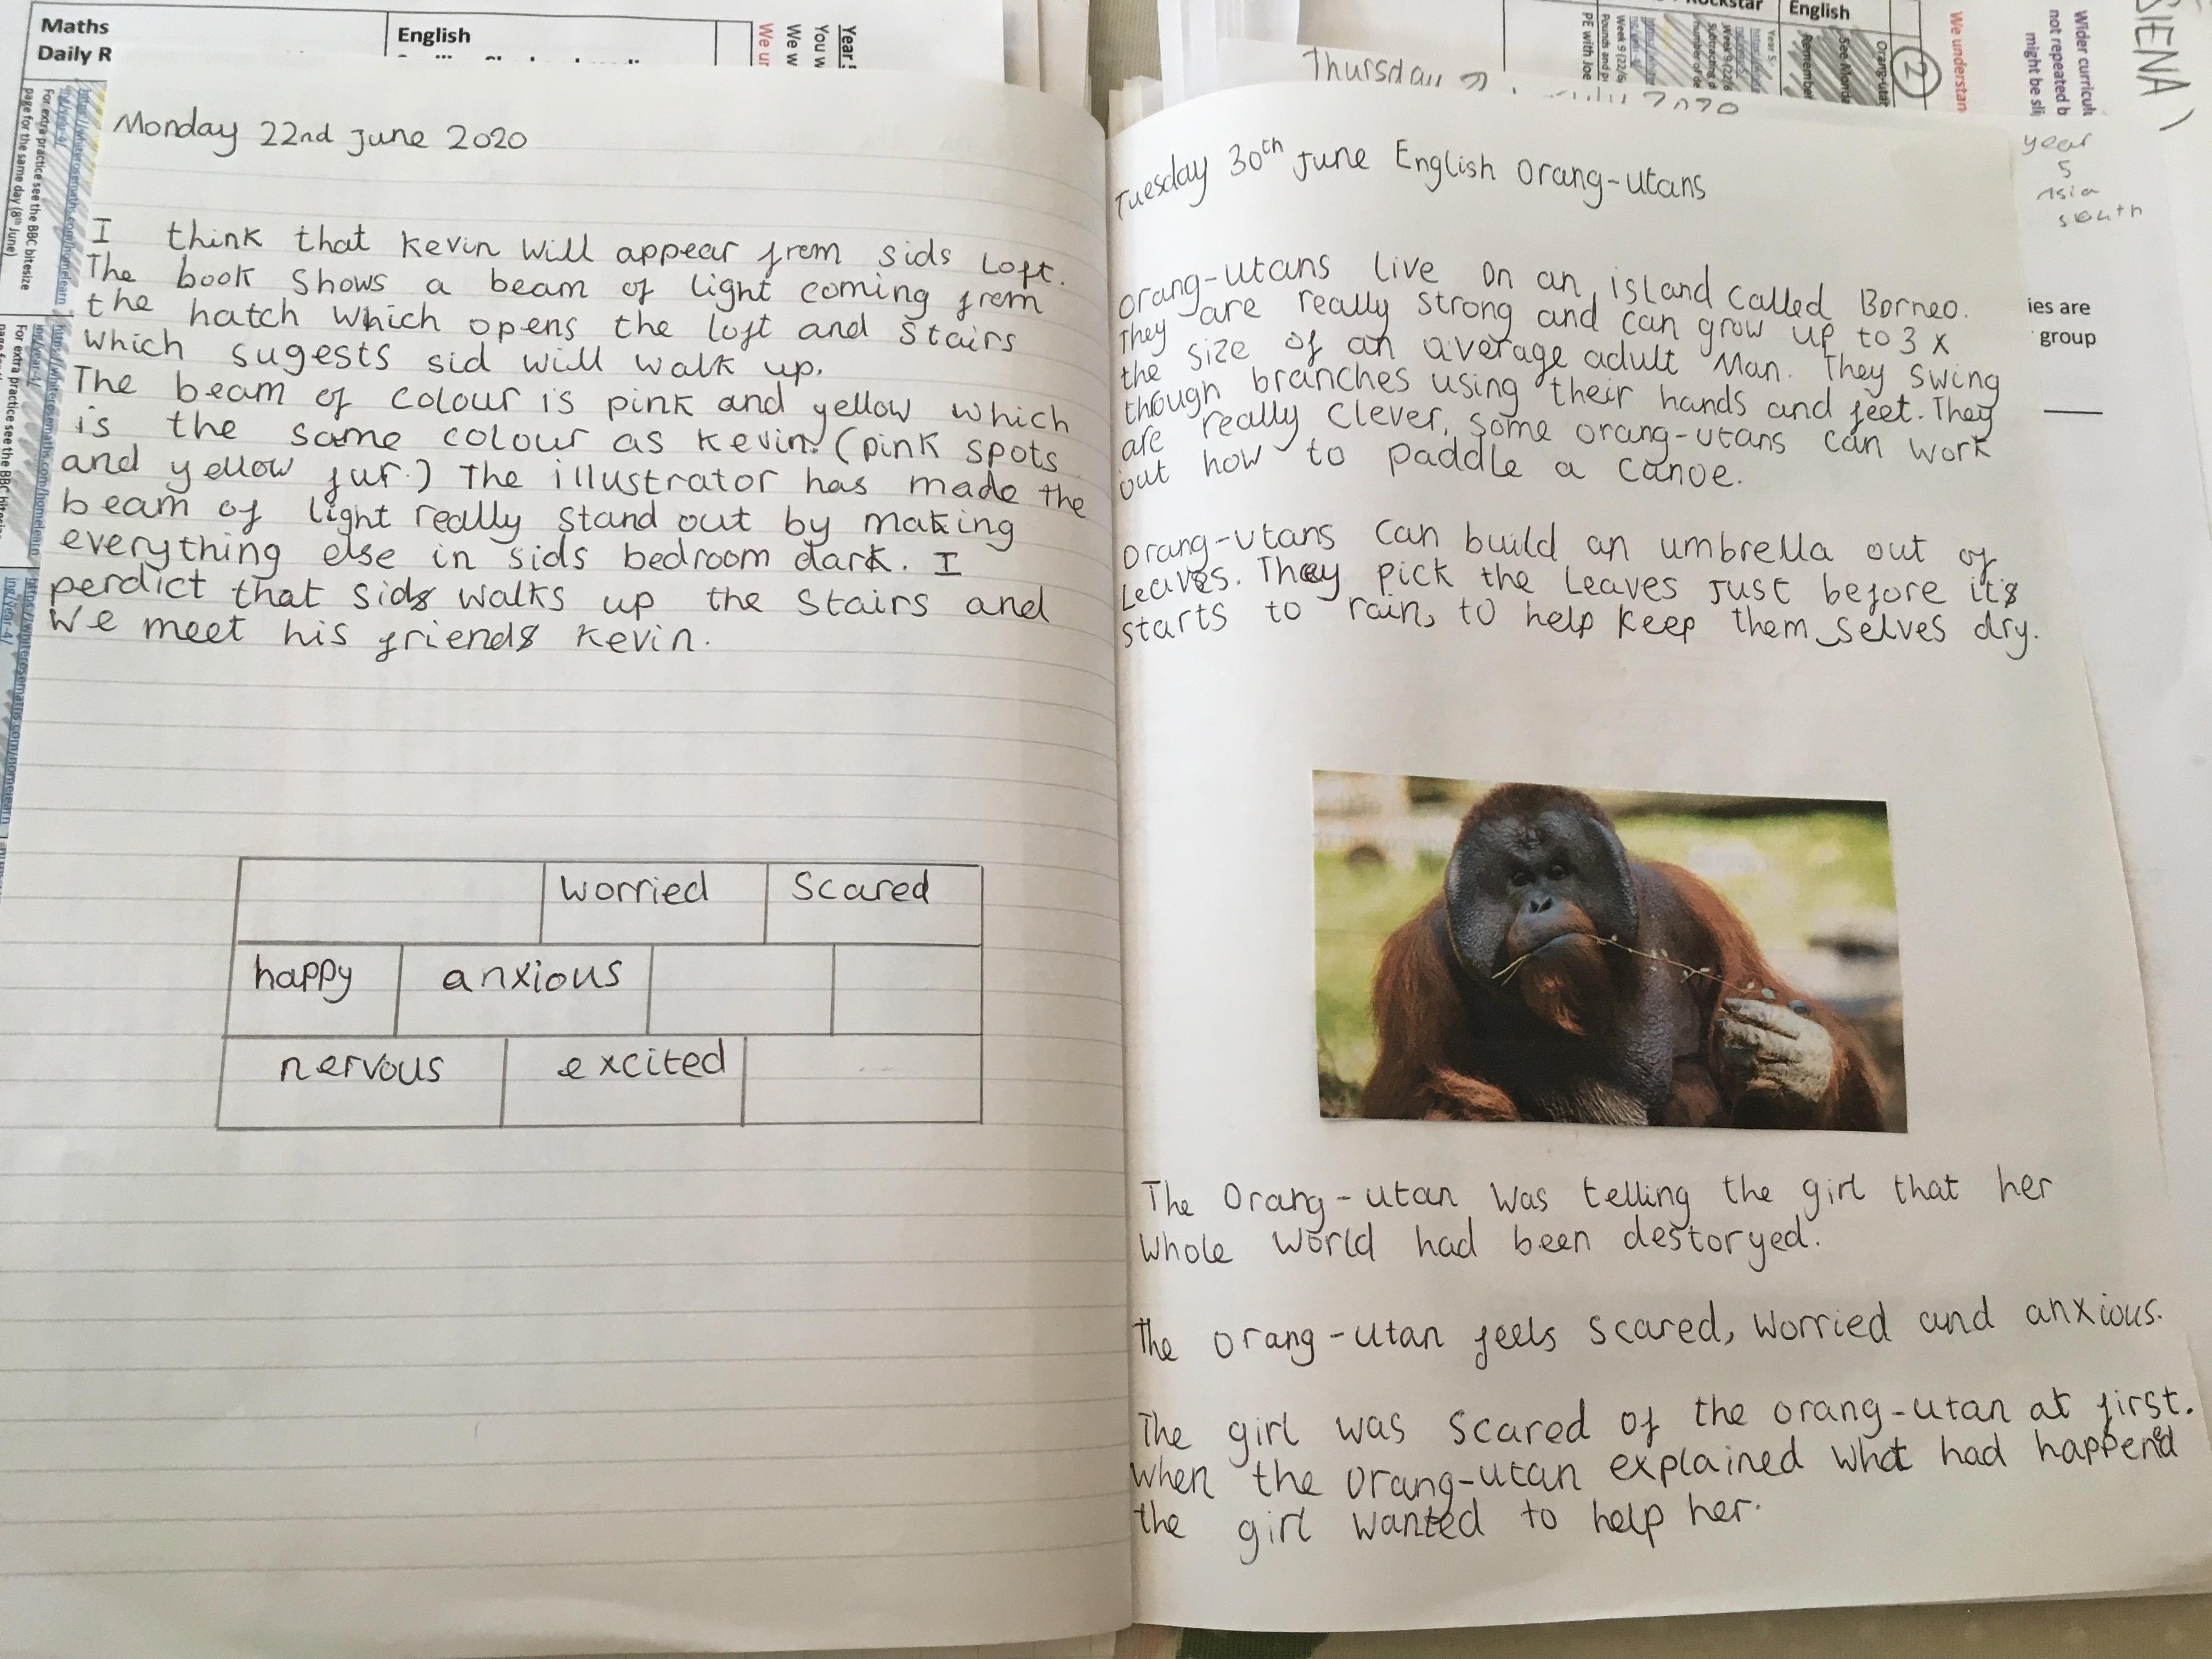 Maths
Daily R
English
Year
You w
We w
We ur
For extra practice see the BBC bitesize
page for the same day (8th June)
For extra practice see the BBC bitesize
Monday 22nd June 2020
I think that Kevin will appear from sids Loft.
The book shows a beam of light coming from
the hatch which opens the loft and stairs
which sugests sid will walk up.
The beam of colour is pink and yellow which
is the same colour as Kevin. (pink spots
and yellow fur.) The illustrator has made the
beam of light really stand out by making
everything else in sids bedroom dark. I
perdict that sids walks up the stairs and
We meet his friends Kevin.
worried scared
happy anxious
nervous excited
Thursday
2020
English
Remember
See Monda
Orang-utan
PE with Joe
2
We understan
Wider curricul
not repeated b
might be sli
SIENA)
year
5
Asia
south
ies are
group
Tuesday 30th June English Orang-utans
Orang-utans live on an island called Borneo.
They are really strong and can grow up to 3 x
the size of an average adult Man. They swing
through branches using their hands and feet. They
are really clever, some orang-utans can work
out how to paddle a canoe.
Orang-utans can build an umbrella out of
Leaves. They pick the leaves just before its
starts to rain, to help keep them selves dry.
The Orang-utan was telling the girl that her
whole world had been destoryed.
The orang-utan feels scared, worried and anxious.
The girl was scared of the orang-utan at first.
when the orang-utan explained what had happened
the girl wanted to help her.